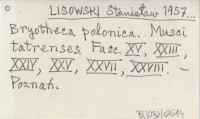 LISOWSKI Stanisław 1957...
Bryotheca polonica. Musci
tatrenses Fasc. XV, XXIII,
XXIV, XXV, XXVII, XXVIII. -
Poznań.